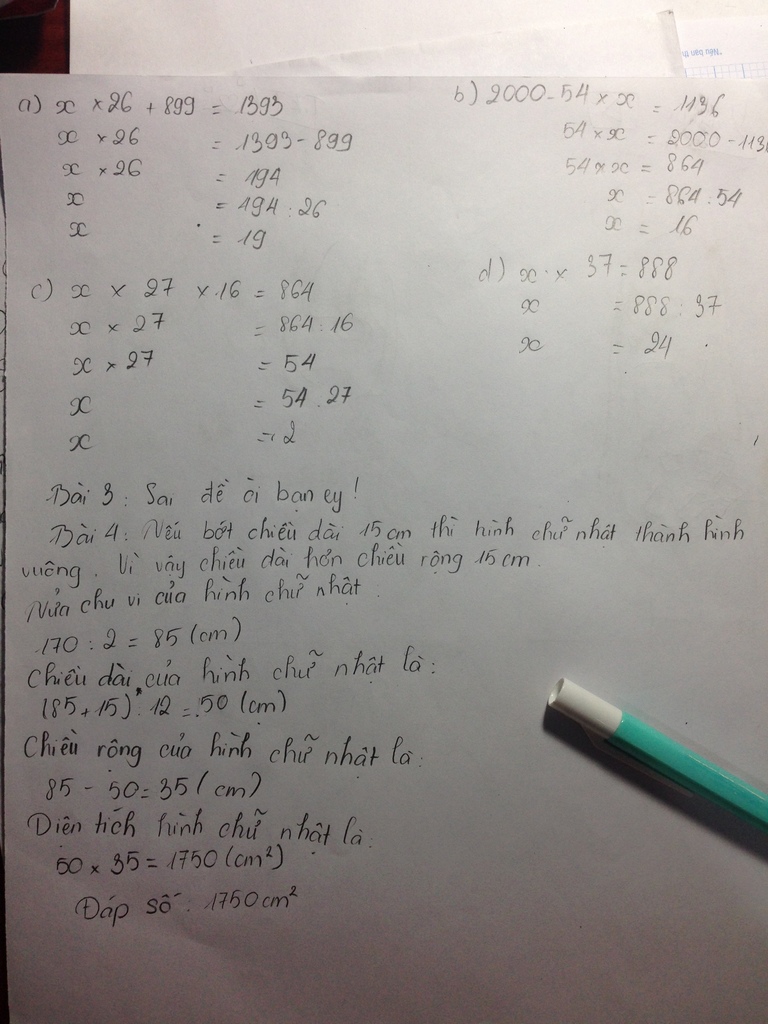 a) x × 26 + 899 = 1393
x × 26 = 1393 - 899
x × 26 = 194
x = 194 : 26
x = 19
b) 2000 - 54 × x = 1136
54 × x = 2000 - 113
54 × x = 864
x = 864 : 54
x = 16
c) x × 27 × 16 = 864
x × 27 = 864 : 16
x × 27 = 54
x = 54 : 27
x = 2
d) x × 37 = 888
x = 888 : 37
x = 24
Bài 3 : Sai đề òi bạn ey !
Bài 4 : Nếu bớt chiều dài 15 cm thì hình chữ nhật thành hình
vuông . Vì vậy chiều dài hơn chiều rộng 15 cm .
Nửa chu vi của hình chữ nhật .
170 : 2 = 85 (cm)
Chiều dài của hình chữ nhật là :
(85 + 15) : 12 = 50 (cm)
Chiều rộng của hình chữ nhật là :
85 - 50 = 35 (cm)
Diện tích hình chữ nhật là :
50 × 35 = 1750 (cm²)
Đáp số : 1750 cm²